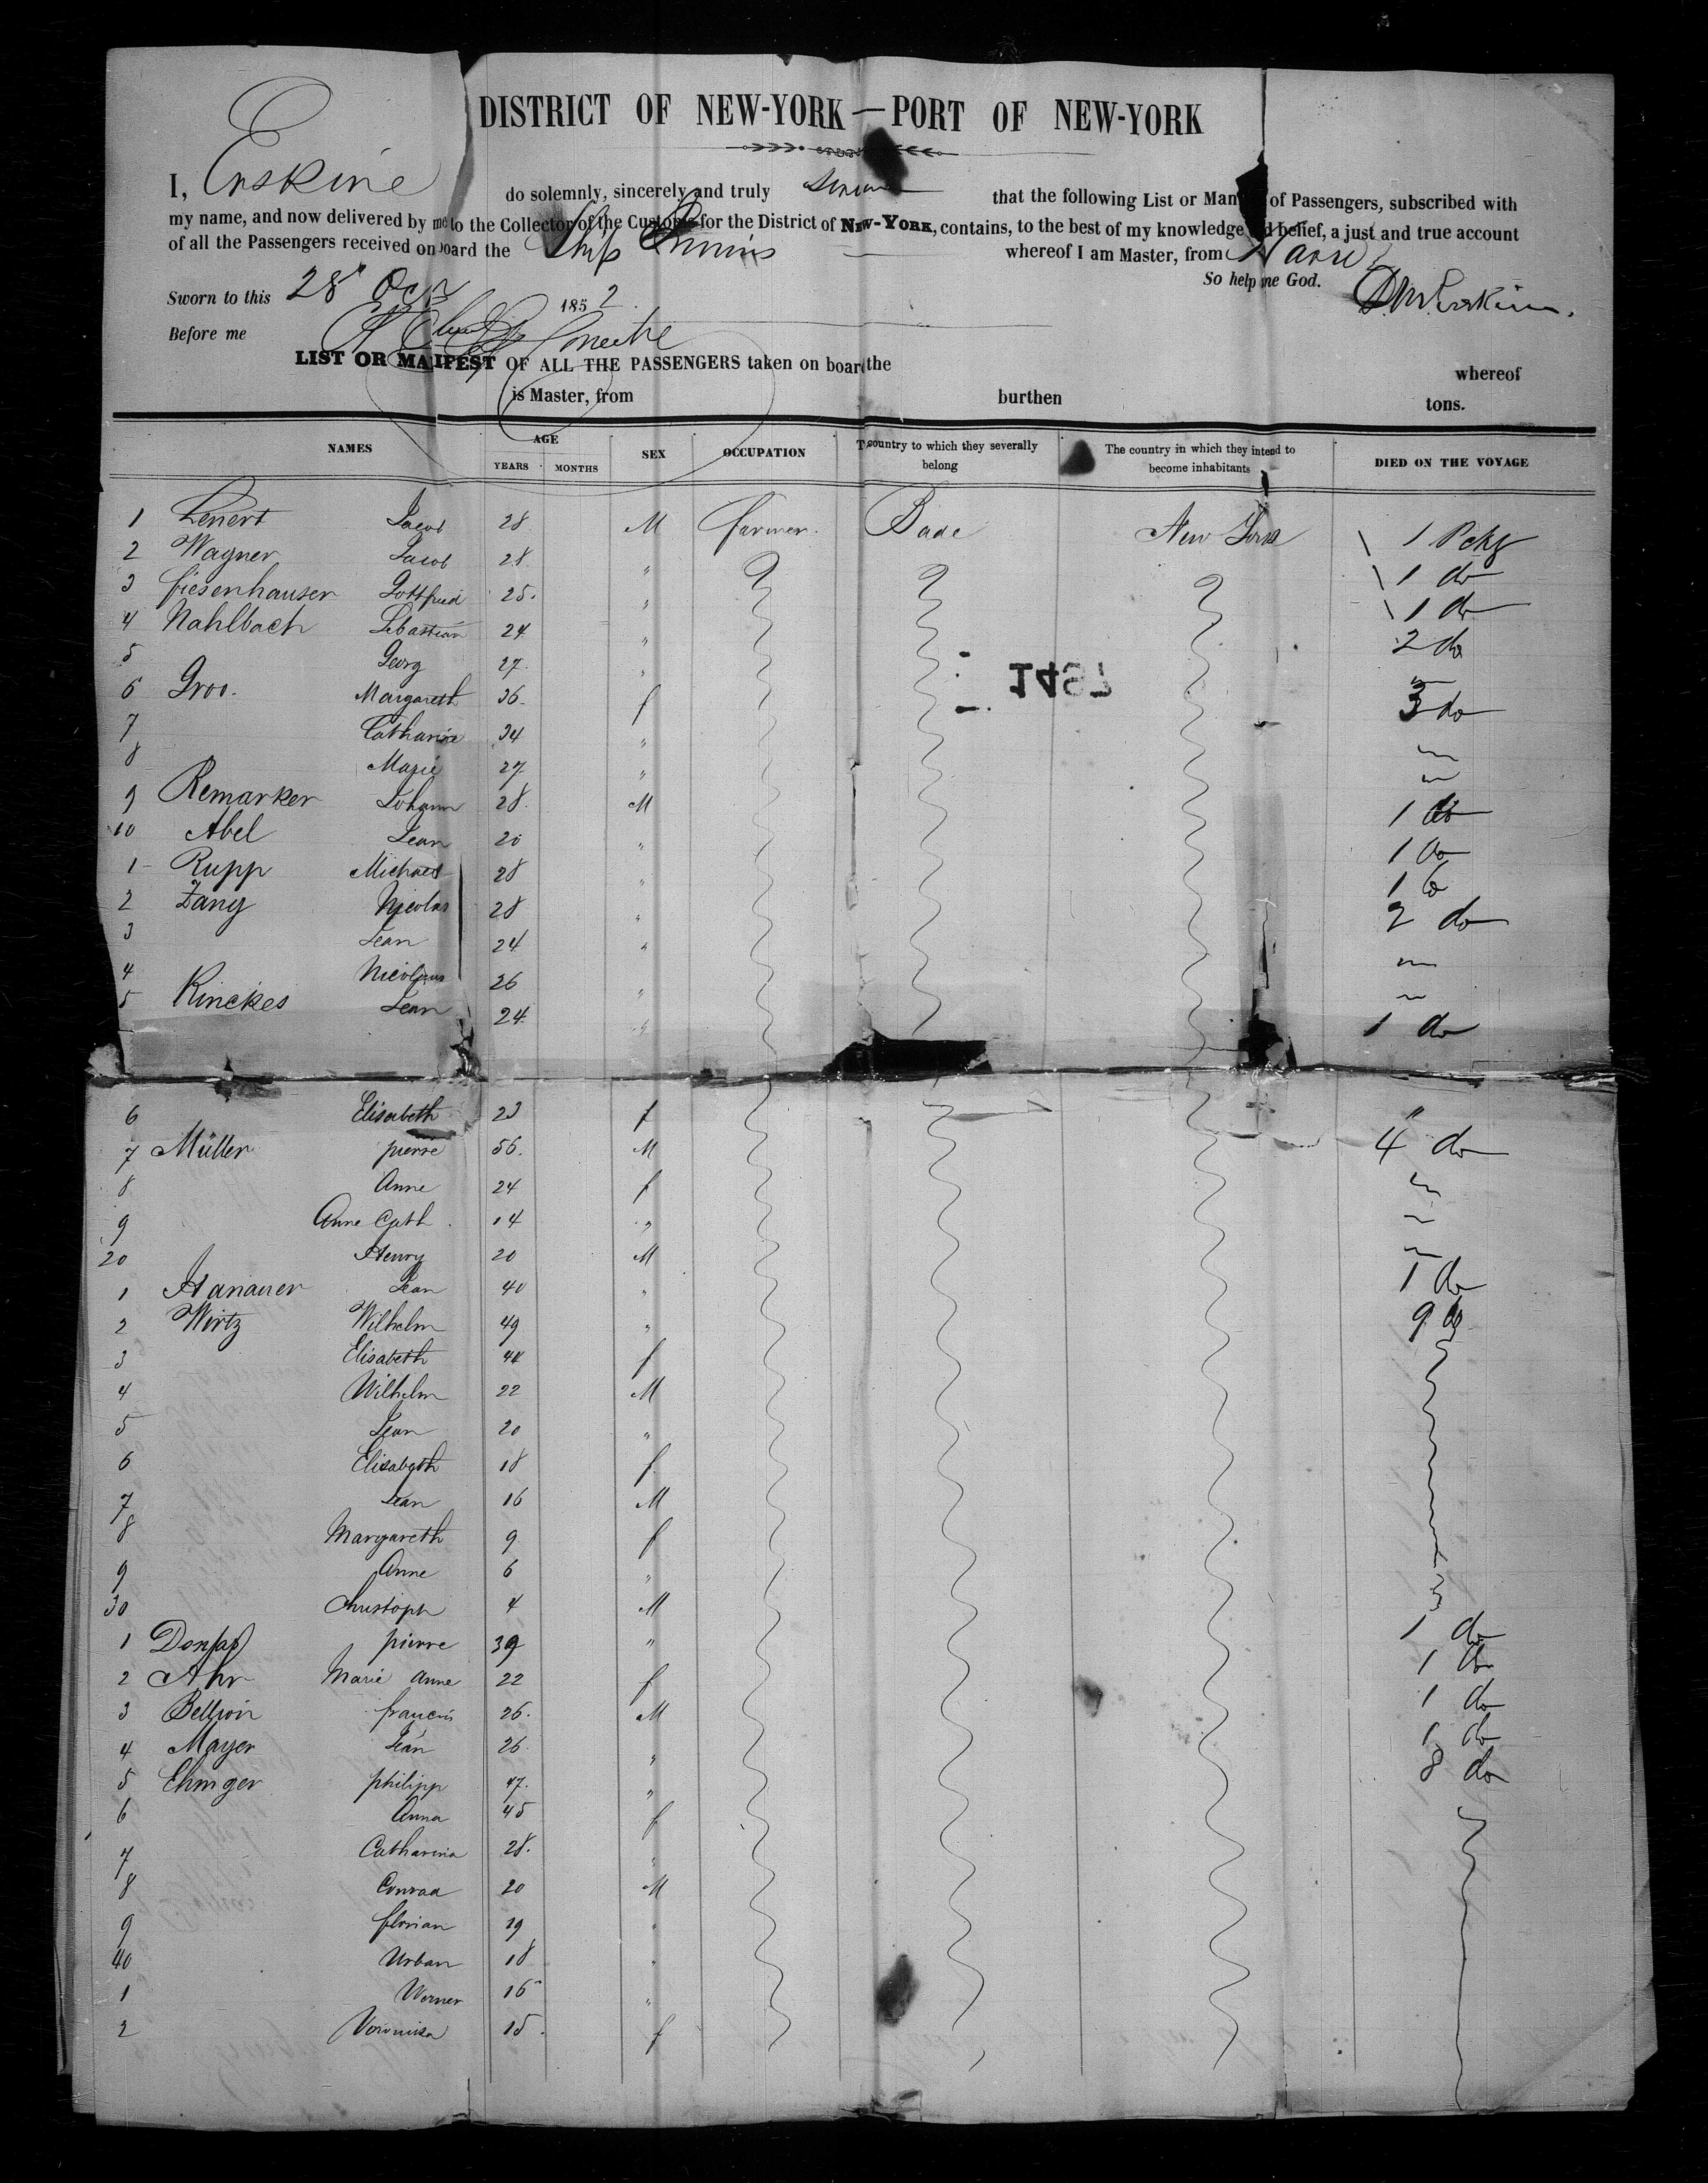 DISTRICT OF NEW-YORK — PORT OF NEW-YORK
I, Erskine do solemnly, sincerely and truly swear that the following List or Man of Passengers, subscribed with
my name, and now delivered by me to the Collector of the Customs for the District of NEW-YORK, contains, to the best of my knowledge and belief, a just and true account
of all the Passengers received on board the Ship whereof I am Master, from Havre
So help me God.
Sworn to this 28" Oct 1852 D. M. Erskine.
Before me
LIST OR MANIFEST OF ALL THE PASSENGERS taken on board the whereof
is Master, from burthen tons.
NAMES AGE YEARS MONTHS SEX OCCUPATION The country to which they severally belong The country in which they intend to become inhabitants DIED ON THE VOYAGE
1 Lenert Jacob 28 M farmer. Bade New York \ 1 Pckg
2 Wagner Jacob 28 " \ 1 do
3 Giesenhauser Gottfried 25. " \ 1 do
4 Nahlbach Sebastian 24 " 2 do
5 Georg 27. " "
1497
6 Groo. Margareth 36. f 3 do
7 Catharine 34 " "
8 Marie 27 " "
9 Remarker Johann 28. M 1 do
10 Abel Jean 20 " 1 do
1 Rupp Michael 28 " 1 do
2 Zang Nicolas 28 " 2 do
3 Jean 24 " "
4 Nicolaus 26 " "
5 Rinckes Jean 24. " 1 do
6 Elisabeth 23 f "
7 Müller pierre 56. M 4 do
8 Anne 24 f "
9 Anne Cath. 14 " "
20 Henry 20 M "
1 Hanauer Jean 40 " 1 do
2 Wirtz Wilhelm 49 " 9 do
3 Elisabeth 44 f
4 Wilhelm 22 M
5 Jean 20 "
6 Elisabeth 18 f
7 Jean 16 M
8 Margareth 9 f
9 Anne 6 "
30 Christoph 4 M
1 pierre 39 " 1 do
2 Ahr Marie Anne 22 f 1 do
3 Bellion francis 26. M 1 do
4 Mayer Jean 26 " 1 do
5 Ehinger philipp 47. " 8 do
6 Anna 45 f
7 Catharina 28. "
8 Conrad 20 M
9 florian 19 "
40 Urban 18 "
1 Werner 16 "
2 Veronika 15. f